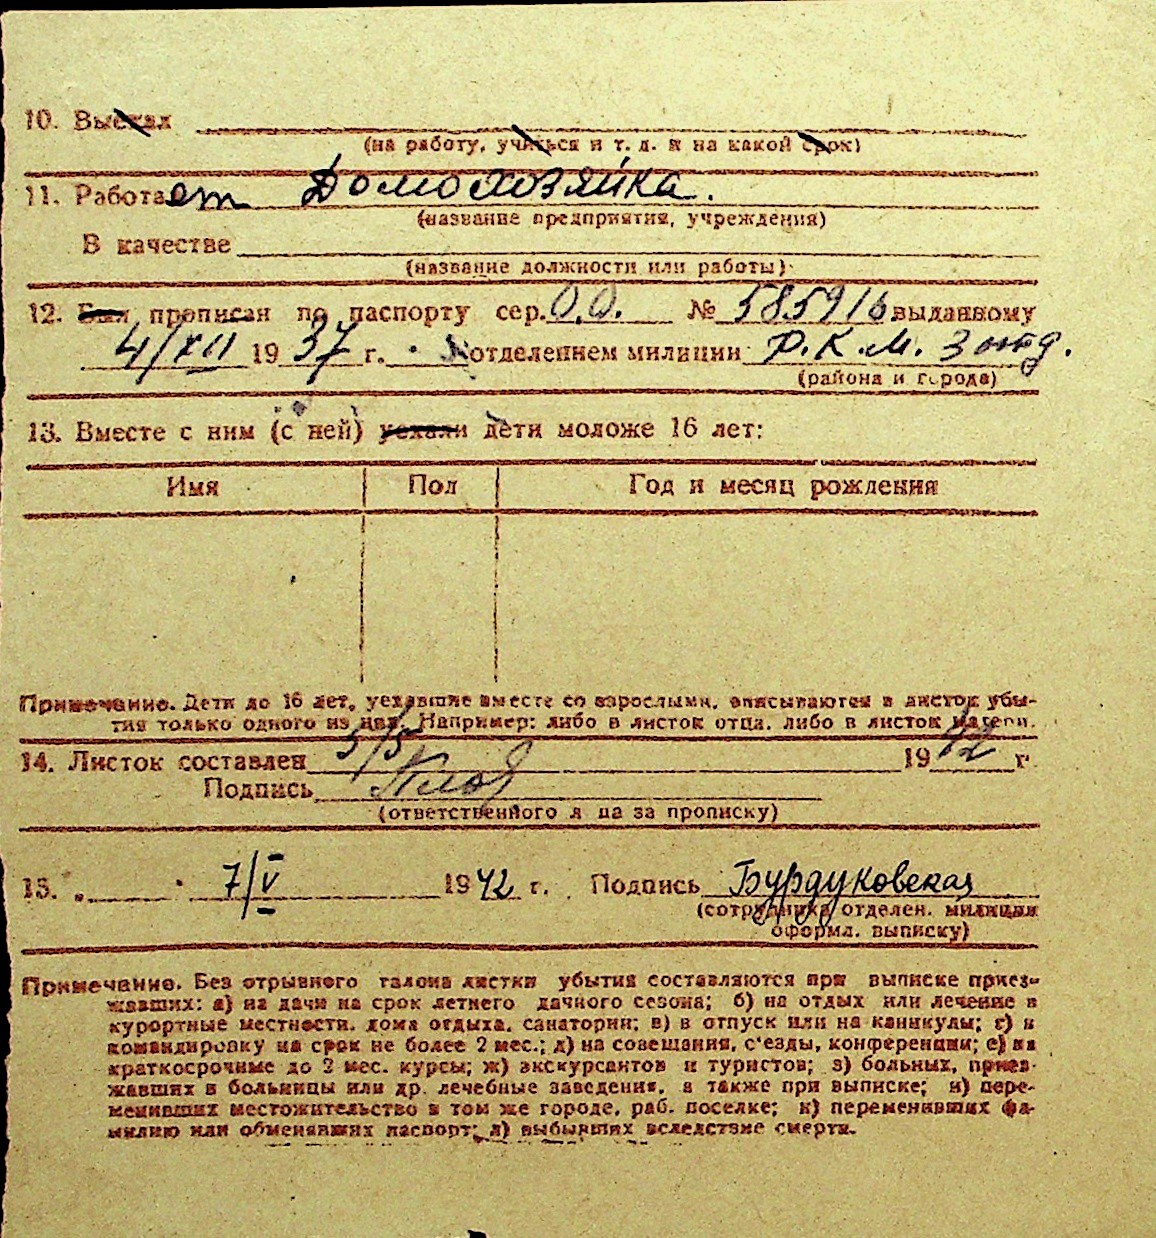 10. Выехал
(на работу, учиться и т. д. и на какой срок)
11. Работает Домохозяйка.
(название предприятия, учреждения)
В качестве
(название должности или работы)
12. Был прописан по паспорту сер. О.О. № 585916 выданному
4/XII 1937 г. отделением милиции Р.К.М. 3 отд.
(района и города)
13. Вместе с ним (с ней) уехали дети моложе 16 лет:
Имя Пол Год и месяц рождения
Примечание. Дети до 16 лет, уехавшие вместе со взрослыми, вписываются в листок убы-
тия только одного из них. Например: либо в листок отца, либо в листок матери.
14. Листок составлен 5/5 1942 г.
Подпись
(ответственного л ца за прописку)
15. „ 7/V 1942 г. Подпись Бурдуковская
(сотрудника отделен. милиции
оформл. выписку)
Примечание. Без отрывного талона листки убытия составляются при выписке приез-
жавших: а) на дачи на срок летнего дачного сезона; б) на отдых или лечение в
курортные местности, дома отдыха, санатории; в) в отпуск или на каникулы; г) в
командировку на срок не более 2 мес.; д) на совещания, с'езды, конференции; е) на
краткосрочные до 2 мес. курсы; ж) экскурсантов и туристов; з) больных, приез-
жавших в больницы или др. лечебные заведения, а также при выписке; и) пере-
менивших местожительство в том же городе, раб. поселке; к) переменивших фа-
милию или обменявших паспорт; л) выбывших вследствие смерти.